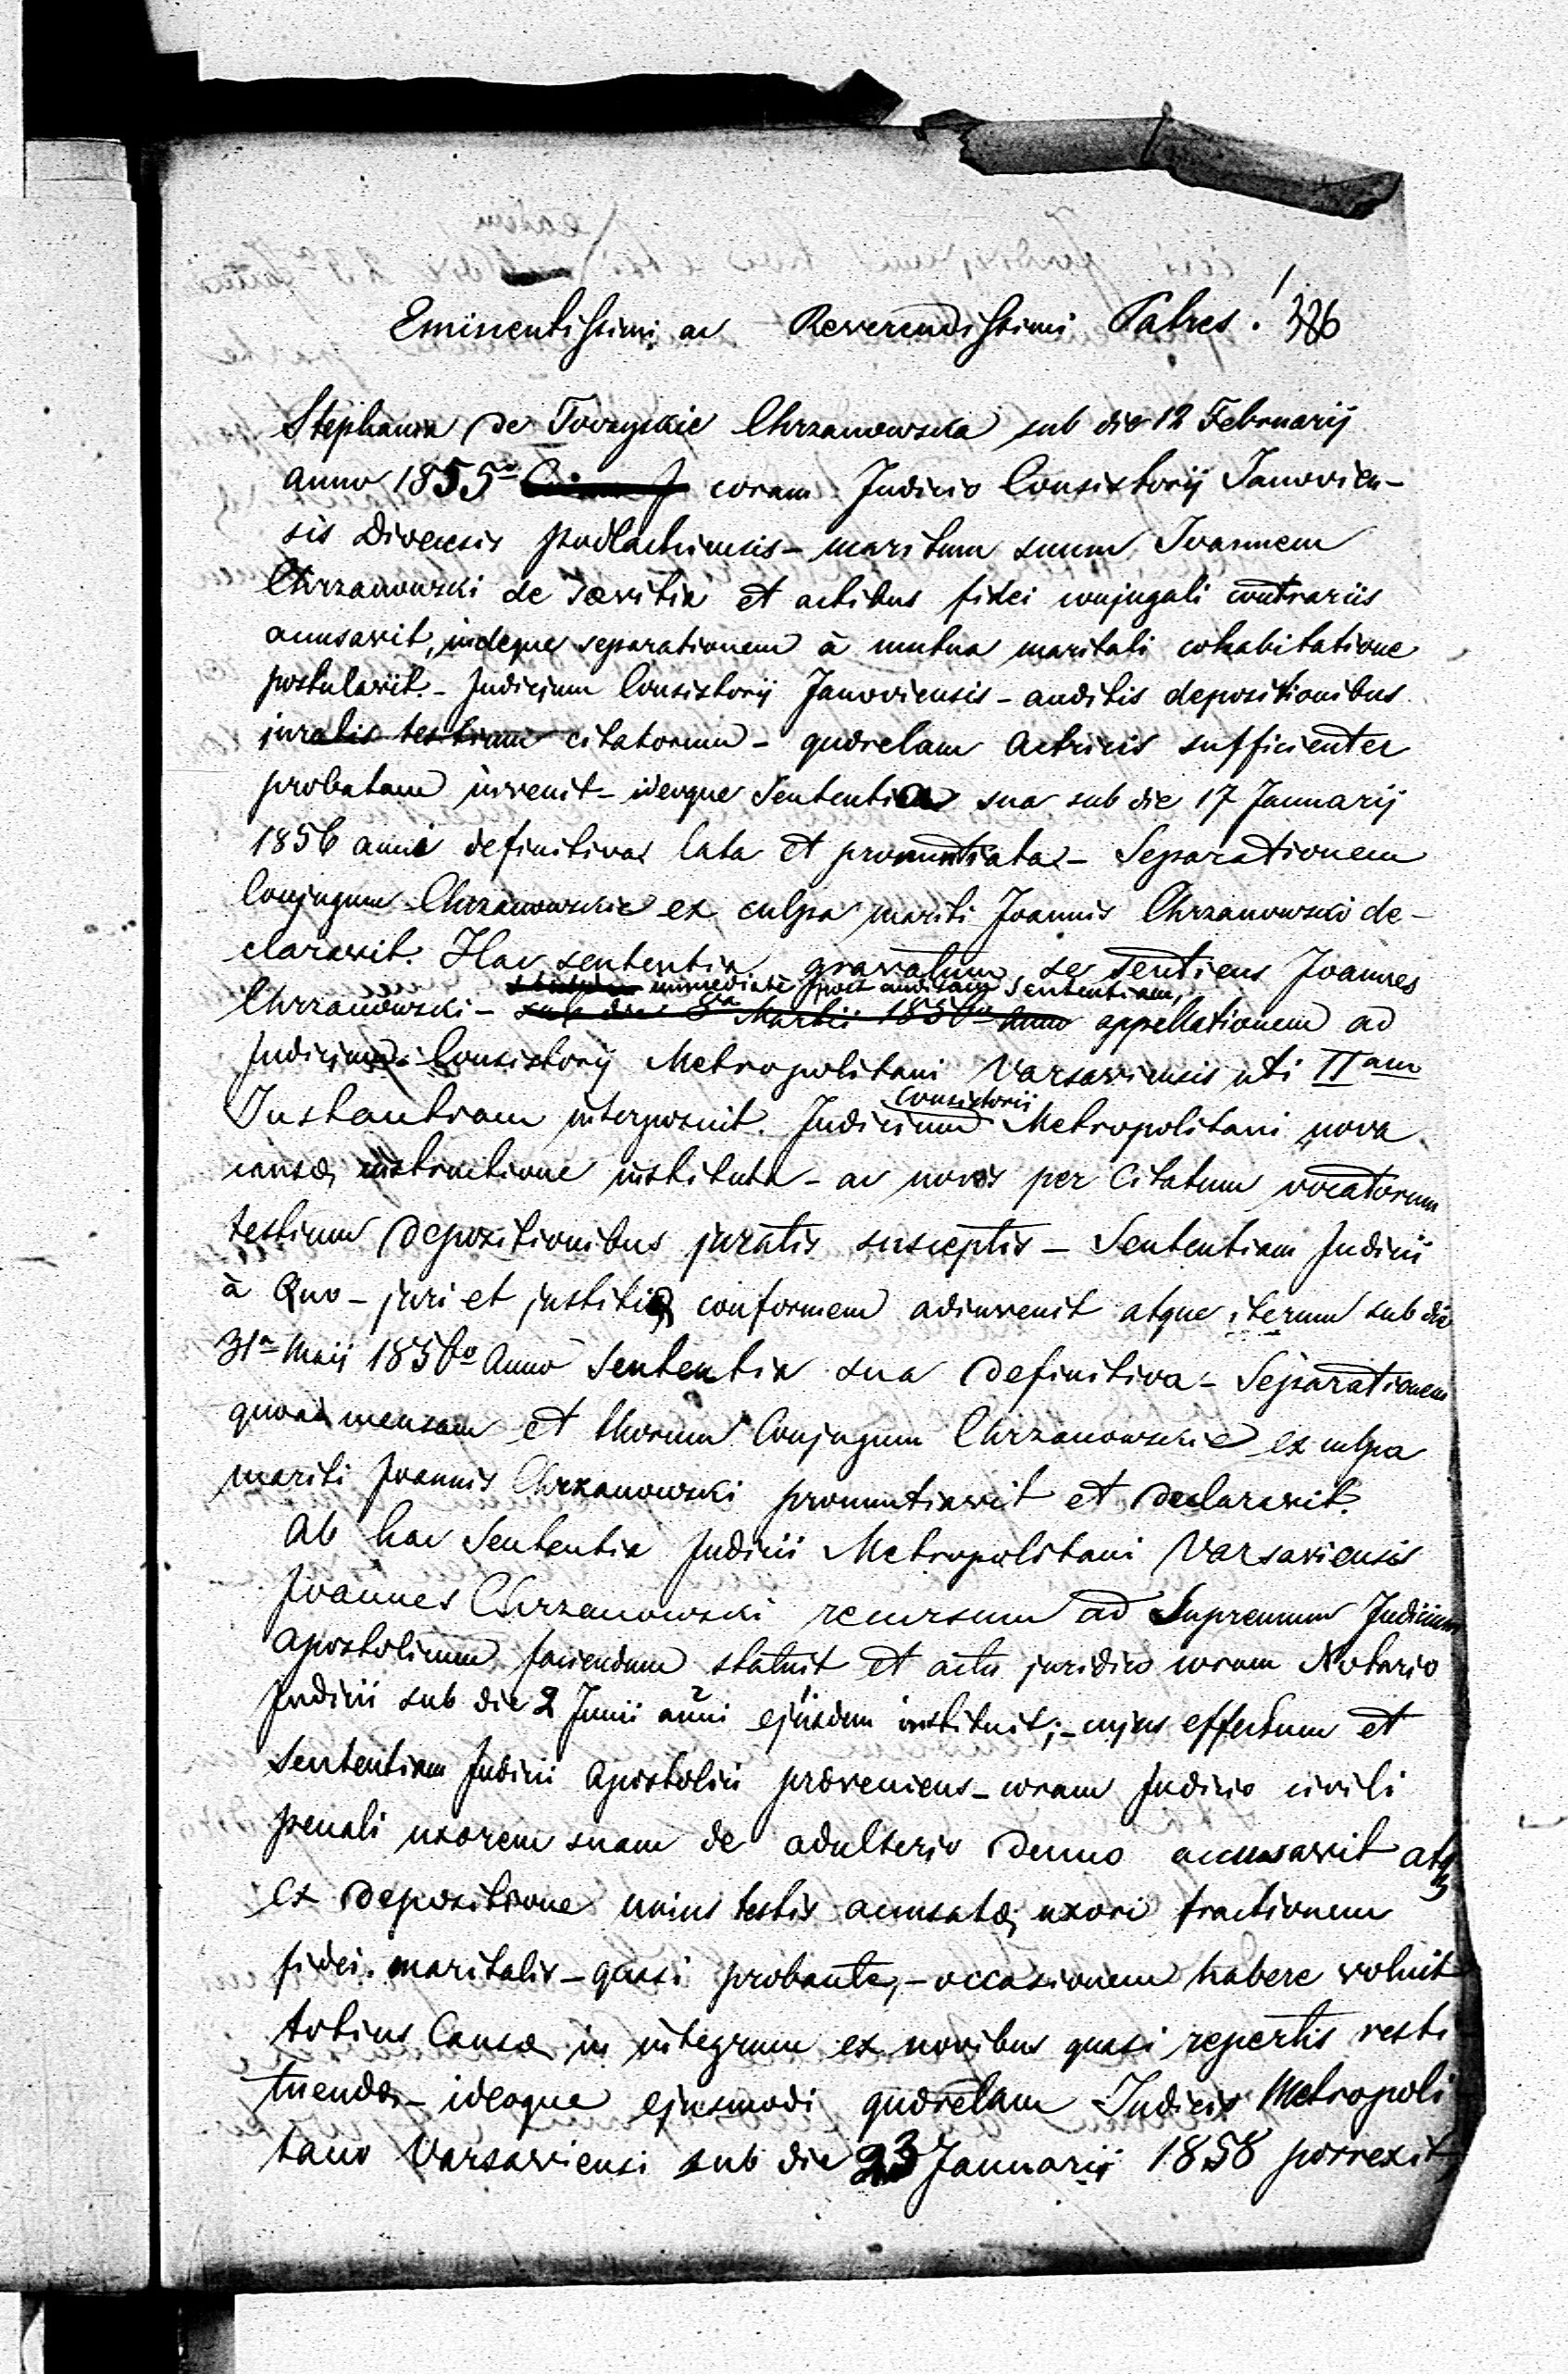 Eminentissimi ac Reverendissimi Patres! 386
Stephania de Toczyskie Chrzanowska sub die 12 Februarij
anno 1855o coram Judicio Consistorij Janovien-
sis Dioecesis podlachiensis - maritum suum, Joannem
Chrzanowski de saevitia et actibus fidei conjugali contrariis
accusavit, indeque separationem à mutua maritali cohabitatione
postulavit. - Judicium Consistorij Janoviensis - auditis depositionibus
juratis testium citatorum - quaerelam actricis sufficienter
probatam invenit - ideoque Sententia sua sub die 17 Januarij
1856 anni definitiva lata et pronuntiata - Separationem
Conjugum Chrzanowskie ex culpa mariti Joannis Chrzanowski de-
claravit. Hac sententia gravatum se sentiens Joannes
immediate post auditam Sententiam,
Chrzanowski - sub die 8va Martii 1856o anno appellationem ad
Judicium Consistorij Metropolitani Varsaviensis uti IIam
Instantiam interposuit. Judicium Consistorii Metropolitani nova
causae instructione instituta - ac novis per Citatum vocatorum
testium depozitionibus juratis susceptis - Sententiam Judicii
à Quo - juri et justitiae conformem adinvenit atque iterum sub die
31a Maij 1856o Anno Sententia sua definitiva - Separationem
quoad mensam et thorum Conjugum Chrzanowskie ex culpa
mariti Joannis Chrzanowski pronuntiavit et declaravit.
Ab hac Sententia Judicii Metropolitani Varsaviensis
Joannes Chrzanowski recursum ad Supremum Judicium
Apostolicum faciendum statuit et actu juridico coram Notario
Judicii sub die 2 Junii anni ejusdem instituit; - cujus effectum et
Sententiam Judicii Apostolici praeveniens - coram Judicio civili
penali uxorem suam de adulterio denuo accusavit atq
ex depozitione unius testis accusatae uxori fractionem
fidei maritalis - quasi probante, - occasionem habere voluit
totius Causae in integrum ex novibus quasi repertis resti
tuendae - ideoque ejusmodi quaerelam Judicio Metropoli
tano Varsaviensi sub die 23 Januarij 1858 porrexit,